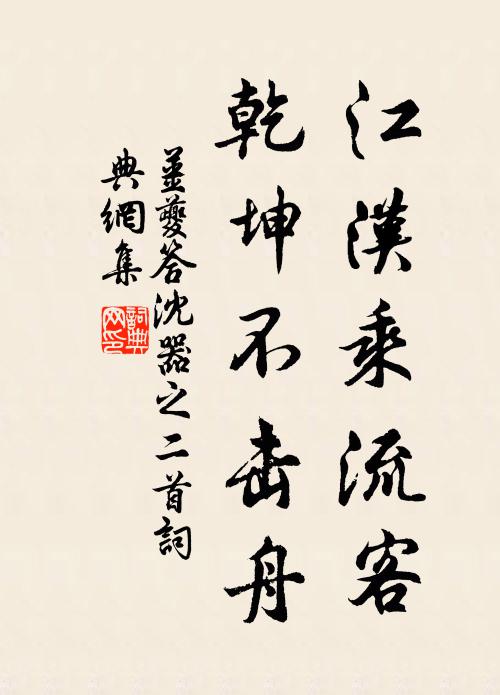 江漢乘流客
乾坤不击舟
薑夔答沈器之二首詞
典網集
詞典
网印